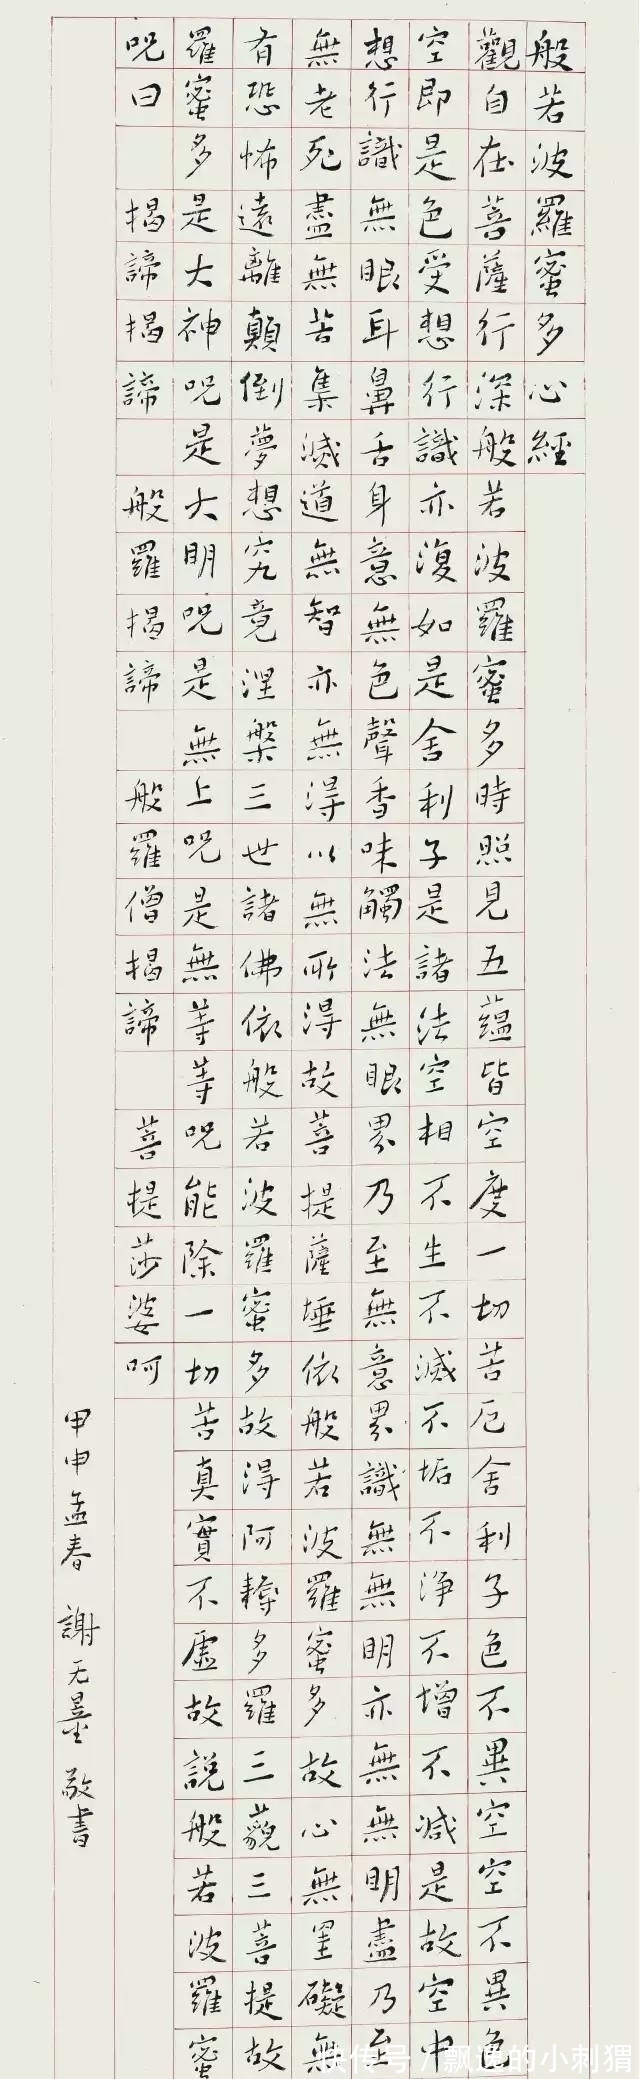 般若波羅蜜多心經
觀自在菩薩行深般若波羅蜜多時照見五蘊皆空度一切苦厄舍利子色不異空空不異色
空即是色受想行識亦復如是舍利子是諸法空相不生不滅不垢不淨不增不減是故空中
想行識無眼耳鼻舌身意無色聲香味觸法無眼界乃至無意界識無無明亦無無明盡乃至
無老死盡無苦集滅道無智亦無得以無所得故菩提薩埵依般若波羅蜜多故心無罣礙無
有恐怖遠離顛倒夢想究竟涅槃三世諸佛依般若波羅蜜多故得阿耨多羅三藐三菩提故
羅蜜多是大神呪是大明呪是無上呪是無等等呪能除一切苦真實不虛故說般若波羅蜜
呪曰 揭諦揭諦 般羅揭諦 般羅僧揭諦 菩提莎婆呵
甲申孟春 謝无墨 敬書
快传号 / 飘逸的小刺猬